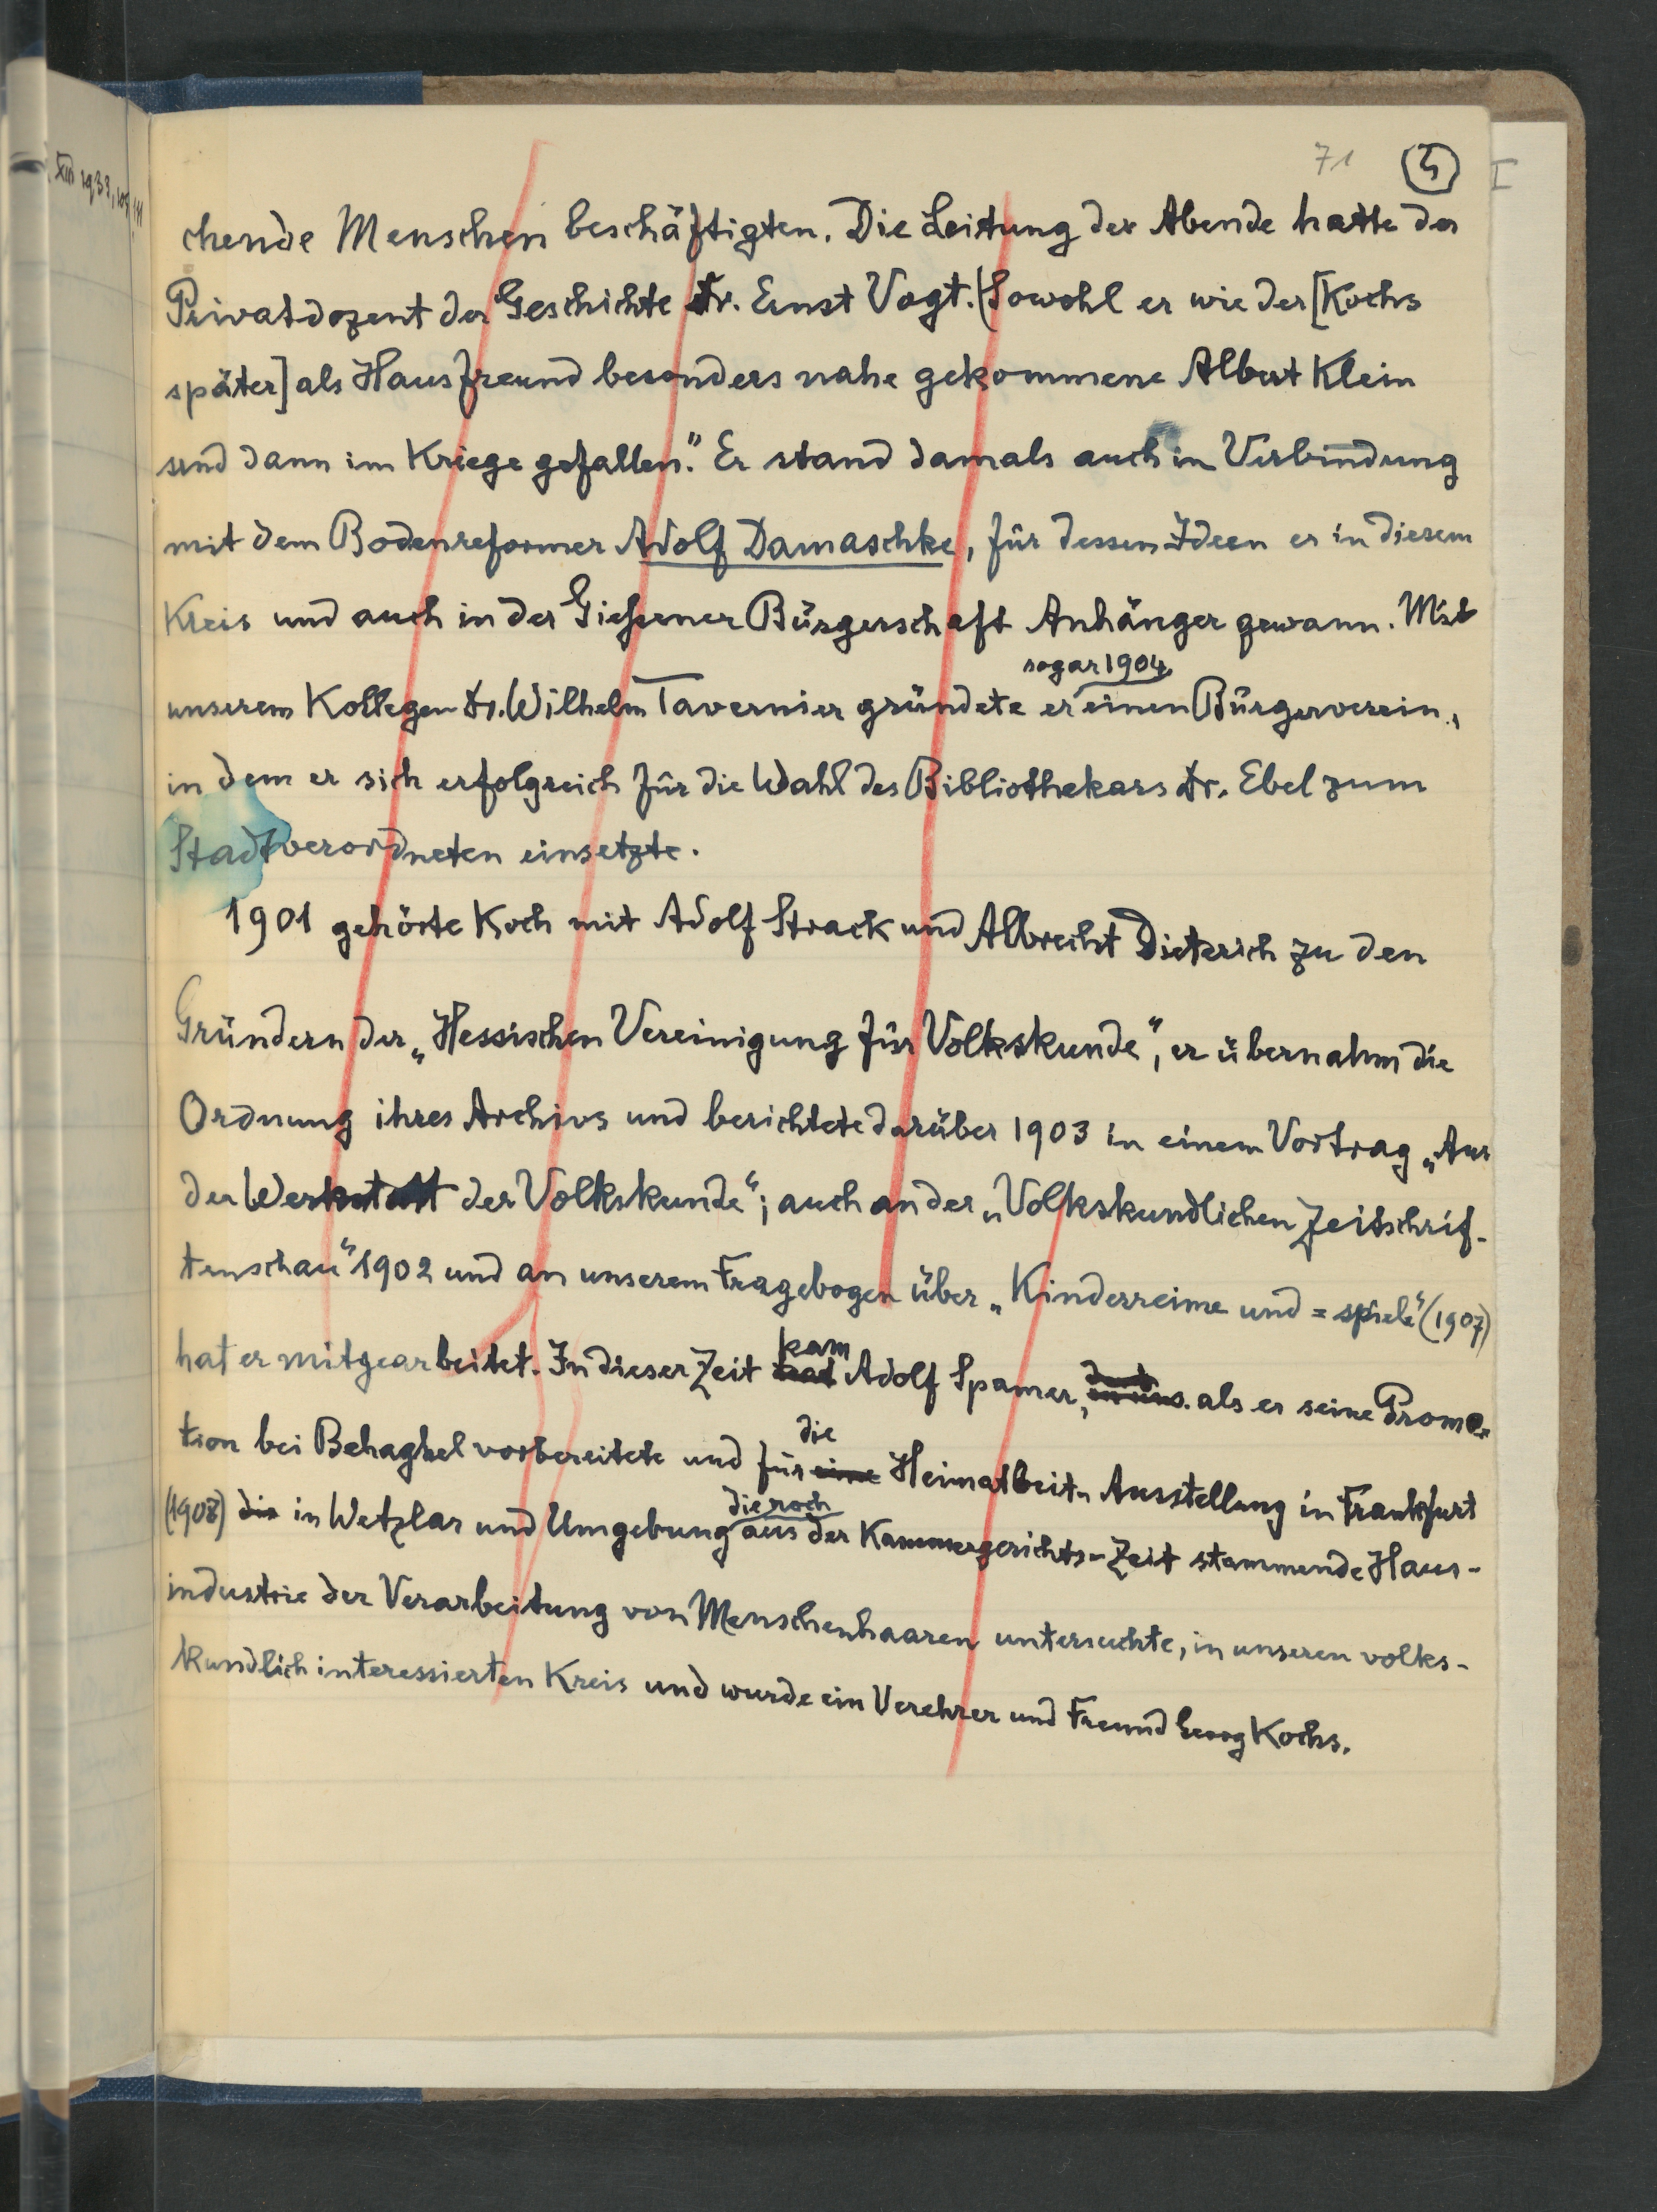 XII 1933, 109
71 5 I
chende Menschen beschäftigten. Die Leitung der Abende hatte der
Privatdozent der Geschichte Dr. Ernst Vogt. (Sowohl er wie der [Kochs
später] als Hausfreund besonders nahe gekommene Albert Klein
sind dann im Kriege gefallen." Er stand damals auch in Verbindung
mit dem Bodenreformer Adolf Damaschke, für dessen Ideen er in diesem
Kreis und auch in der Gießener Bürgerschaft Anhänger gewann. Mit
sogar 1904
unserem Kollegen Dr. Wilhelm Tavernier gründete er einen Bürgerverein,
in dem er sich erfolgreich für die Wahl des Bibliothekars Dr. Ebel zum
Stadtverordneten einsetzte.
1901 gehörte Koch mit Adolf Strack und Albrecht Dieterich zu den
Gründern der „Hessischen Vereinigung für Volkskunde“, er übernahm die
Ordnung ihres Archivs und berichtete darüber 1903 in einem Vortrag „Aus
der Werkstatt der Volkskunde“; auch an der „Volkskundlichen Zeitschrif-
tenschau“ 1902 und an unserem Fragebogen über „Kinderreime und =spiele“ (1907)
kam
hat er mitgearbeitet. In dieser Zeit trat Adolf Spamer, als er seine Promo-
die
tion bei Behaghel vorbereitete und für eine Heimarbeit-Ausstellung in Frankfurt
die noch
(1908) die in Wetzlar und Umgebung aus der Kammergerichts-Zeit stammende Haus-
industrie der Verarbeitung von Menschenhaaren untersuchte, in unseren volks-
kundlich interessierten Kreis und wurde ein Verehrer und Freund Georg Kochs.